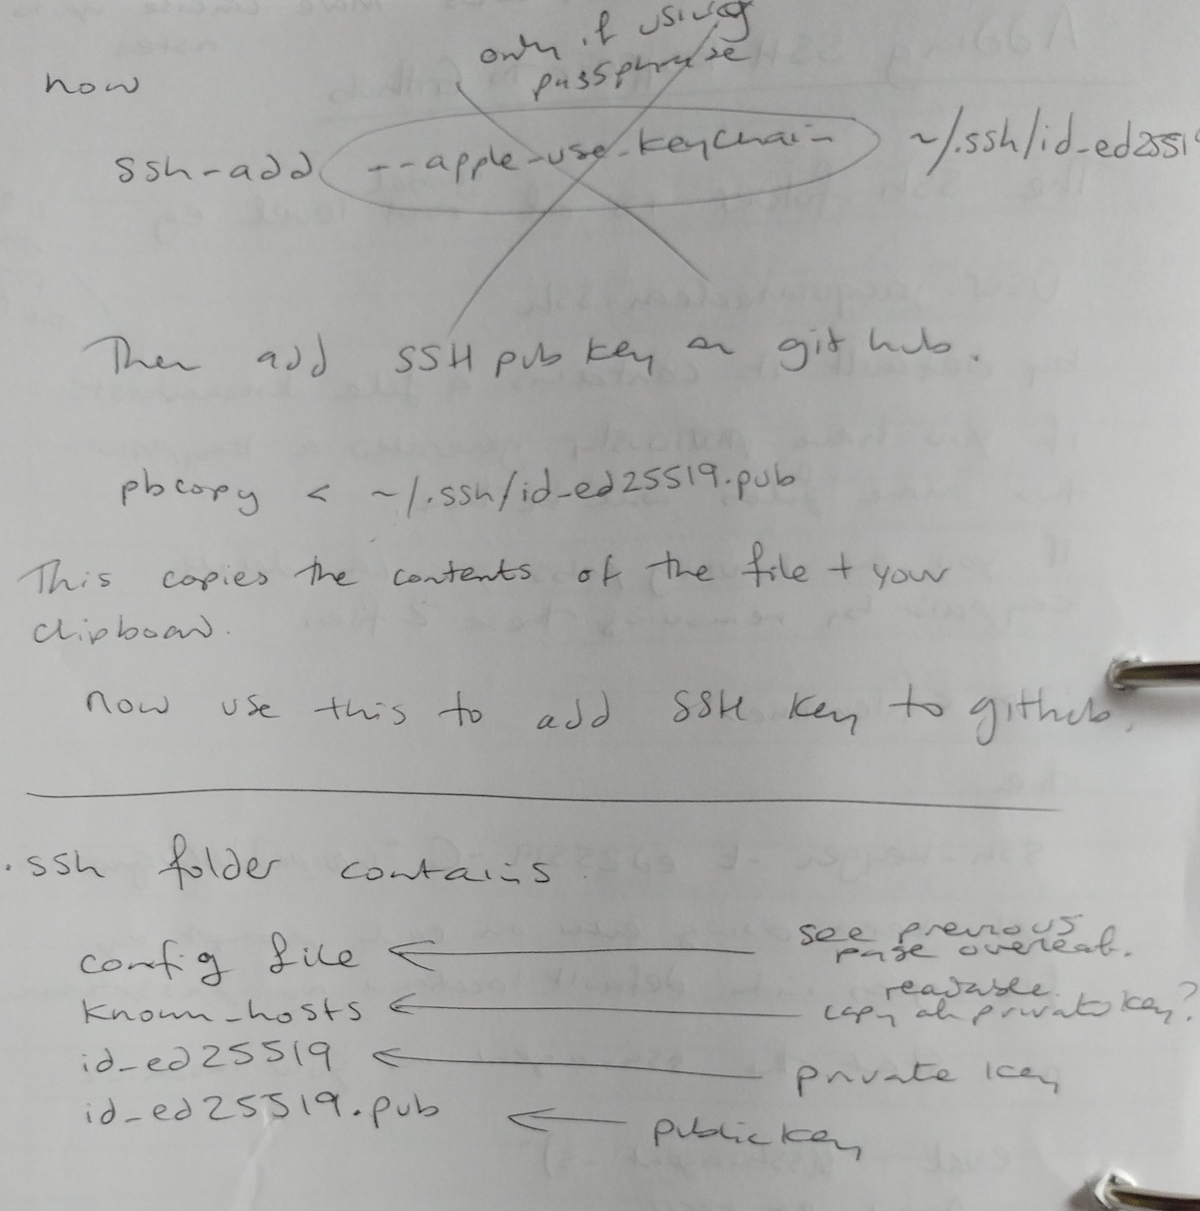 only if using
passphrase
now
ssh-add --apple-use-keychain ~/.ssh/id_ed25519
Then add SSH pub key on github.
pbcopy < ~/.ssh/id_ed25519.pub
This copies the contents of the file + your
clipboard.
now use this to add SSH key to github.
.ssh folder contains
config file ← see previous
page overleaf.
known_hosts ← readable
copy of private key?
id_ed25519 ← private key
id_ed25519.pub ← public key